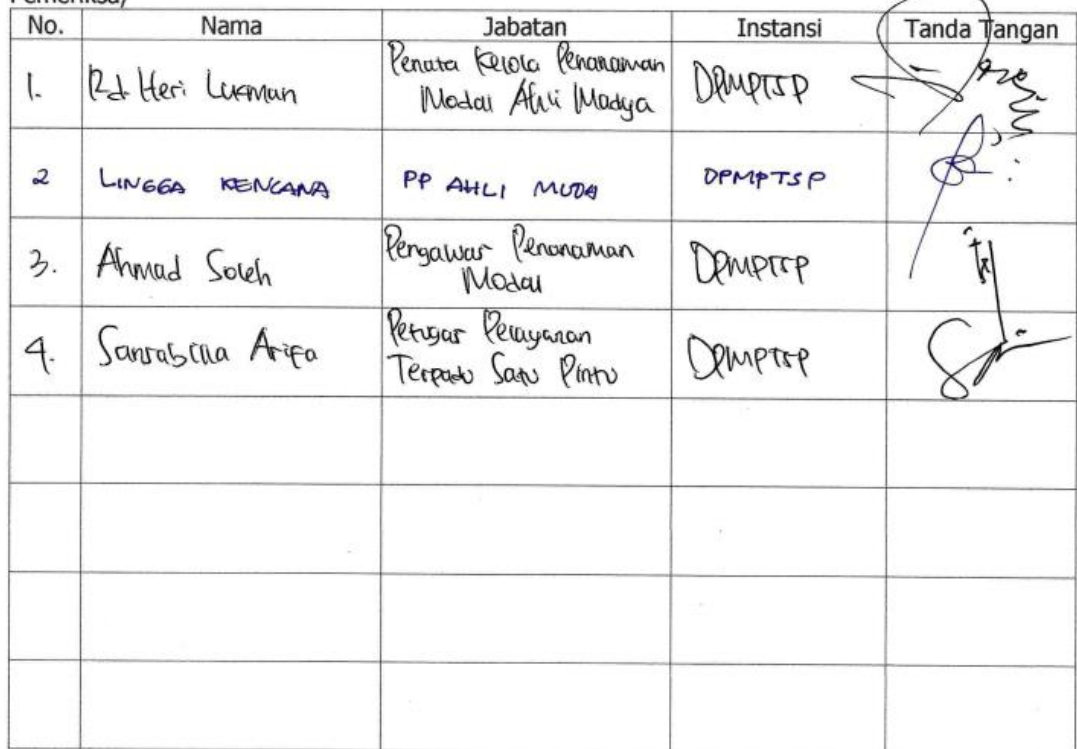 Pemeriksa,
No. Nama Jabatan Instansi Tanda Tangan
1. Rd. Heri Lukman Penata Kelola Penanaman Modal Ahli Madya DPMPTSP
2 LINGGA KENCANA PP AHLI MUDA DPMPTSP
3. Ahmad Soleh Pengawas Penanaman Modal DPMPTSP
4. Sansabilla Arifa Petugas Pelayanan Terpadu Satu Pintu DPMPTSP